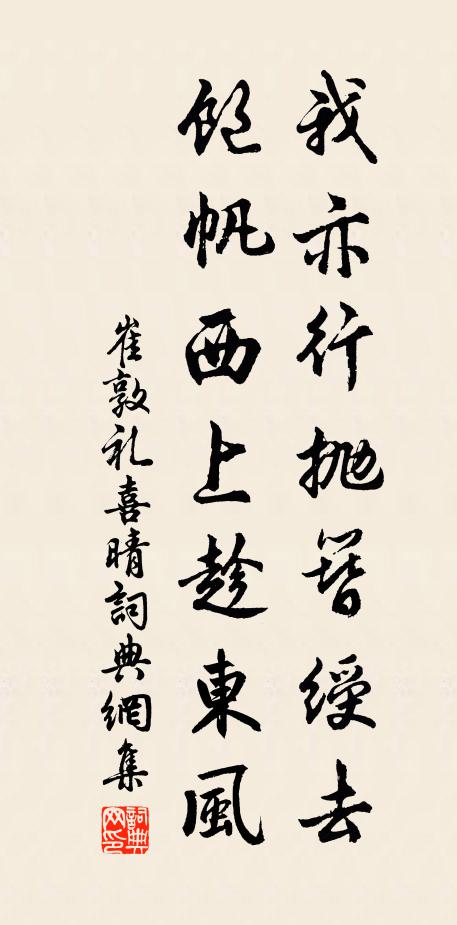 我亦行抛簪綬去
飽帆西上趁東風
崔敦礼喜晴詞典網集
詞典網印